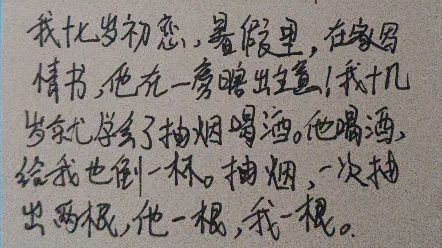 我十七岁初恋，暑假里，在家写
情书，他在一旁瞎出主意！我十几
岁就学会了抽烟喝酒。他喝酒，
给我也倒一杯。抽烟，一次抽
出两根，他一根，我一根。